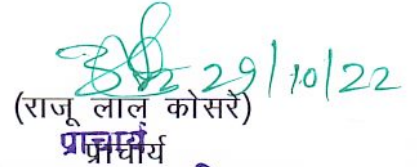 29/10/22
(राजू लाल कोसरे)
प्राचार्य
प्राचार्य